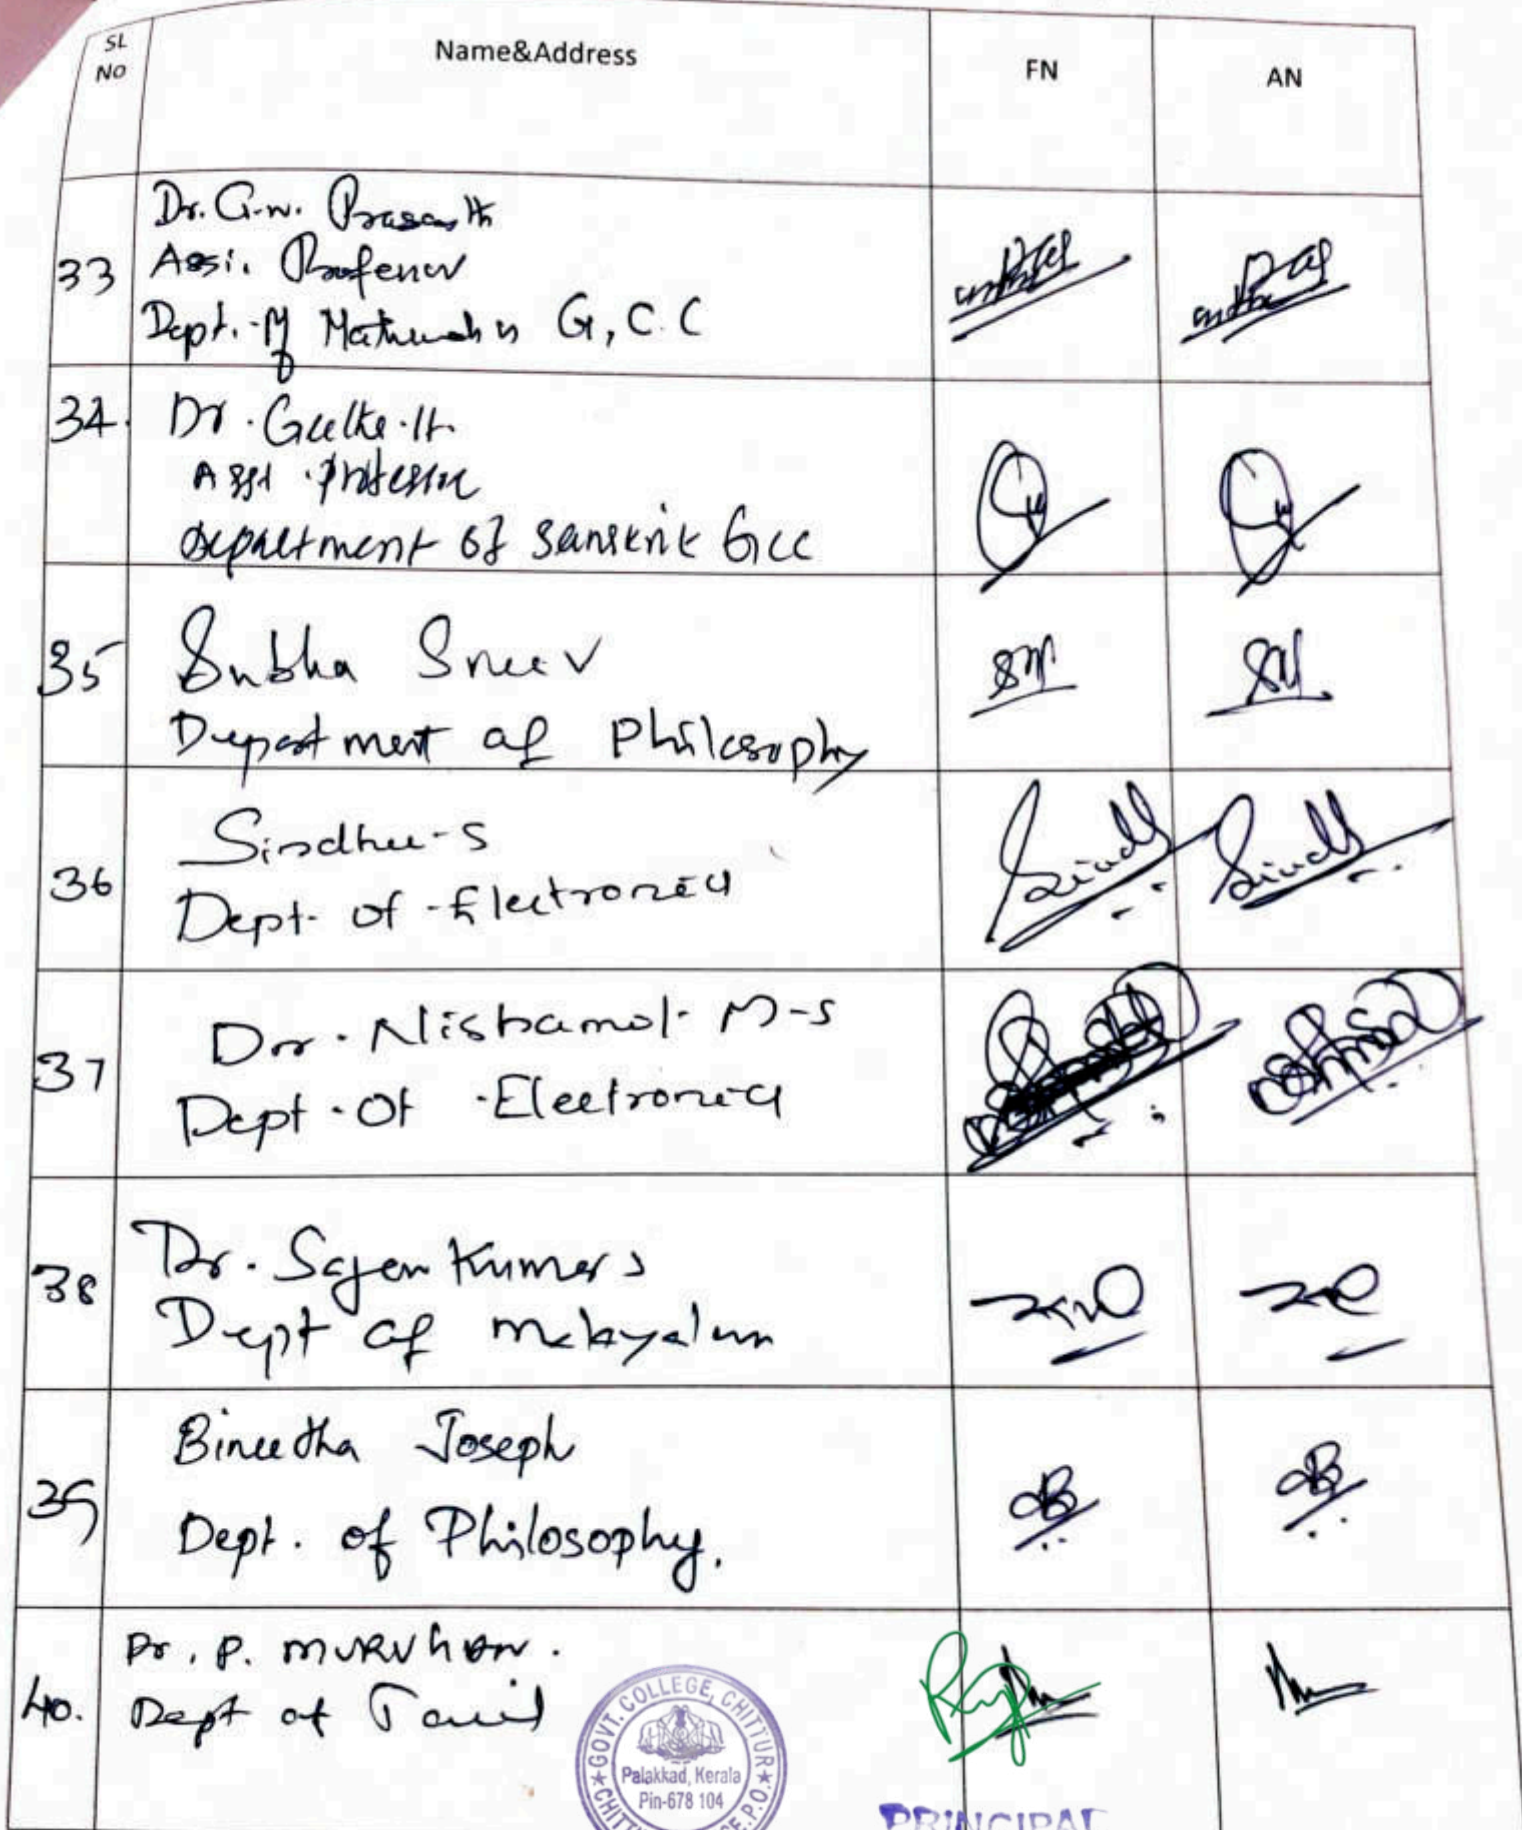 SL
No
Name&Address
FN
AN
33
Dr. G.N. Prasanth
Assi. Professor
Dept. of Mathematics G.C.C
34.
Dr. Geetha. H.
Asst. Professor
Department of Sanskrit Gcc
35
Subha Sree V
Department of Philosophy
36
Sindhu-S
Dept. of Electronics
37
Dr. Nishamol. M-S
Dept. Of Electronics
38
Dr. Sajan Kumar S
Dept of Malayalam
39
Bineetha Joseph
Dept. of Philosophy.
40.
Dr. P. MURUGAN.
Dept of Tamil
GOVT. COLLEGE, CHITTUR
Palakkad, Kerala
Pin-678 104
PRINCIPAL